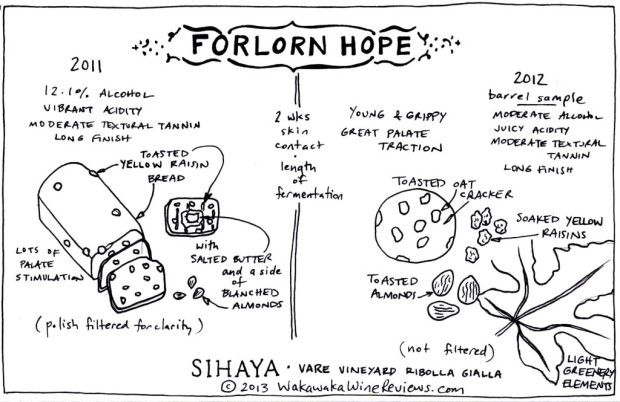 FORLORN HOPE
2011
12.1% ALCOHOL
VIBRANT ACIDITY
MODERATE TEXTURAL TANNIN
LONG FINISH
TOASTED
YELLOW RAISIN
BREAD
LOTS OF
PALATE
STIMULATION
with
SALTED BUTTER
and a side
of
BLANCHED
ALMONDS
(polish filtered for clarity)
2 wks
skin
contact
·
length
of
fermentation
YOUNG & GRIPPY
GREAT PALATE
TRACTION
2012
barrel sample
MODERATE ALCOHOL
JUICY ACIDITY
MODERATE TEXTURAL
TANNIN
LONG FINISH
TOASTED OAT
CRACKER
SOAKED YELLOW
RAISINS
TOASTED
ALMONDS
(not filtered)
LIGHT
GREENERY
ELEMENTS
SIHAYA · VARE VINEYARD RIBOLLA GIALLA
© 2013 WakawakaWineReviews.com